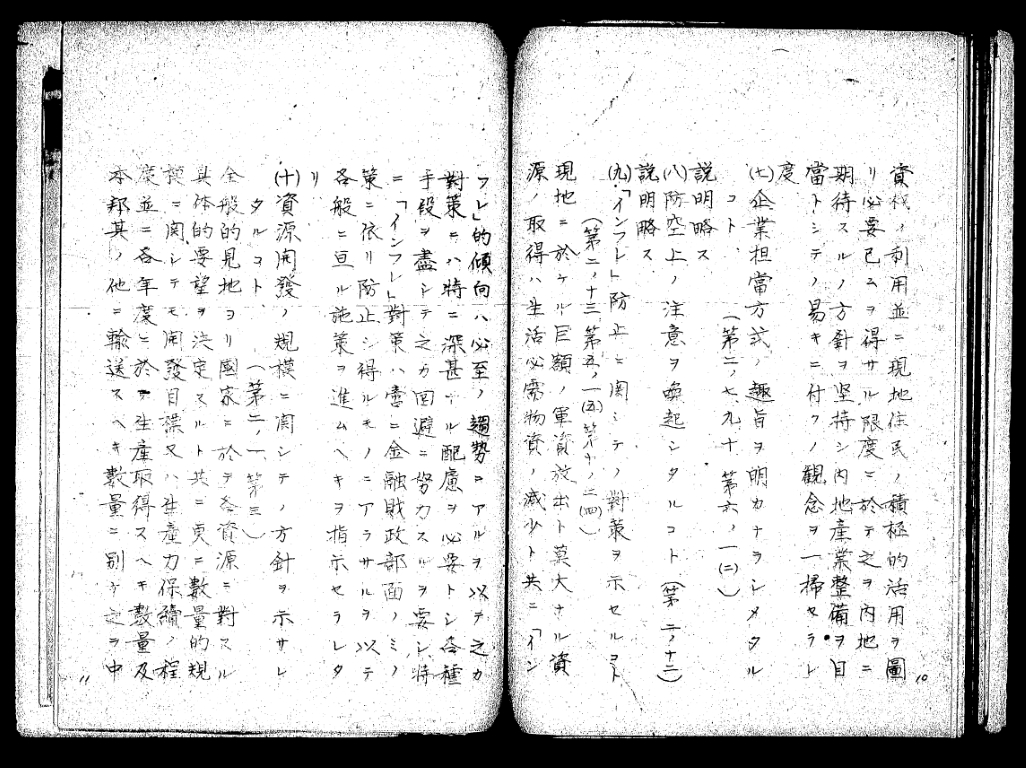 資材ノ利用並ニ現地住民ノ積極的活用ヲ圖
リ必要已ムヲ得サル限度ニ於テ之ヲ内地ニ
期待スルノ方針ヲ堅持シ内地産業整備ヲ目
當トシテノ易キニ付クノ觀念ヲ一掃セラレ
度
(七)企業担當方式ノ趣旨ヲ明カナラシメタル
コト (第二ノ七、九、十 第六ノ一(二))
説明略ス
(八)防空上ノ注意ヲ喚起シタルコト(第二ノ十二)
説明略ス
(九)「インフレ」防止ニ関シテノ對策ヲ示セルコト
(第二ノ十三 第五ノ一(五) 第十ノ二(四))
現地ニ於ケル巨額ノ軍資放出ト莫大ナル資
源ノ取得ハ生活必需物資ノ減少ト共ニ「イン
10
フレ」的傾向ハ必至ノ趨勢ニアルヲ以テ之カ
對策ニハ特ニ深甚ナル配慮ヲ必要トシ各種
手段ヲ盡シテ之カ回避ニ努力スルヲ要シ特
ニ「インフレ」對策ハ啻ニ金融財政部面ノミノ
策ニ依リ防止シ得ルモノニアラサルヲ以テ
各般ニ亘ル施策ヲ進ムヘキヲ指示セラレタ
リ
(十)資源開發ノ規模ニ関シテノ方針ヲ示サレ
タルコト (第二ノ一、第三)
全般的見地ヨリ國家ニ於テ各資源ニ對スル
具体的要望ヲ決定スルト共ニ更ニ數量的規
模ニ関シテモ開發目標又ハ生産力保續ノ程
度並ニ各年度ニ於テ生産取得スヘキ數量及
本邦其ノ他ニ輸送スヘキ數量ニ別ケ之ヲ中
11